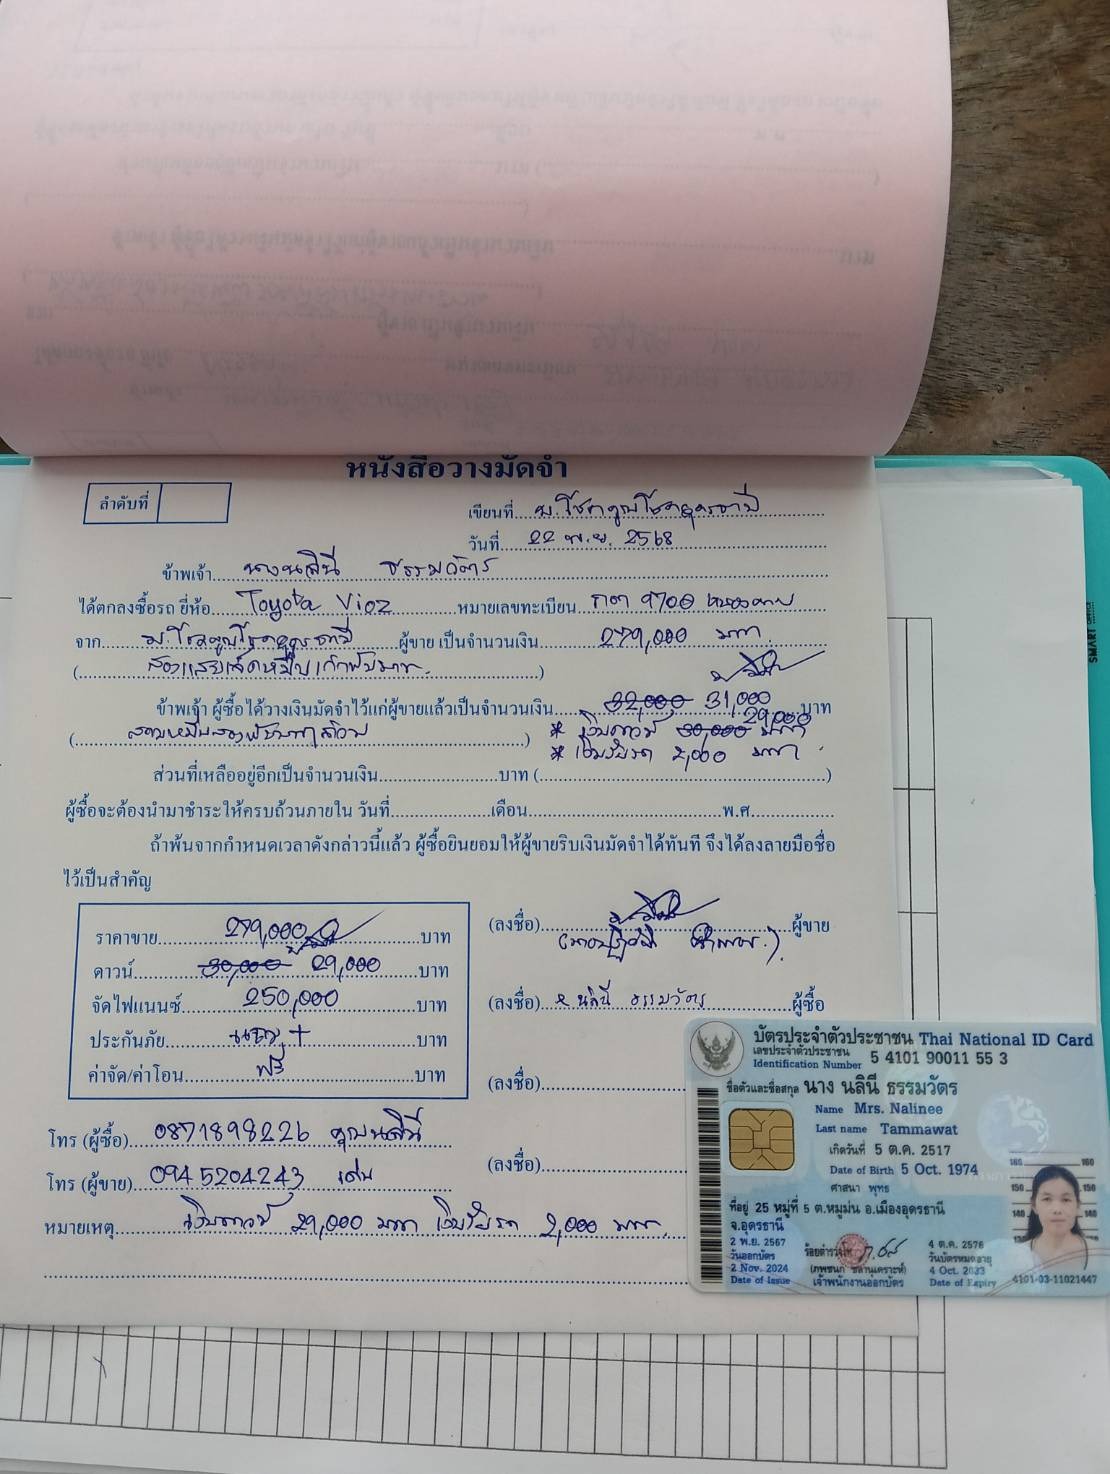 หนังสือวางมัดจำ
ลำดับที่
เขียนที่
วันที่ 22 พ.ย. 2568
ข้าพเจ้า นางนลินี ธรรมวัตร
ได้ตกลงซื้อรถ ยี่ห้อ Toyota Vioz หมายเลขทะเบียน 9700 หนองคาย
จาก ผู้ขาย เป็นจำนวนเงิน 279,000 บาท
(สองแสนเจ็ดหมื่นเก้าพันบาท)
ข้าพเจ้า ผู้ซื้อได้วางเงินมัดจำไว้แก่ผู้ขายแล้วเป็นจำนวนเงิน 32,000 31,000 บาท
(สามหมื่นสองพันบาทถ้วน) * เงินดาวน์ 30,000 29,000 บาท
* เงินรับรถ 2,000 บาท
ส่วนที่เหลืออยู่อีกเป็นจำนวนเงิน บาท ( )
ผู้ซื้อจะต้องนำมาชำระให้ครบถ้วนภายใน วันที่ เดือน พ.ศ.
ถ้าพ้นจากกำหนดเวลาดังกล่าวนี้แล้ว ผู้ซื้อยินยอมให้ผู้ขายริบเงินมัดจำได้ทันที จึงได้ลงลายมือชื่อ
ไว้เป็นสำคัญ
ราคาขาย 279,000 บาท
ดาวน์ 30,000 29,000 บาท
จัดไฟแนนซ์ 250,000 บาท
ประกันภัย บาท
ค่าจัด/ค่าโอน ฟรี บาท
(ลงชื่อ) ผู้ขาย
(ลงชื่อ) นลินี ธรรมวัตร ผู้ซื้อ
(ลงชื่อ)
(ลงชื่อ)
โทร (ผู้ซื้อ) 0871898226 คุณนลินี
โทร (ผู้ขาย) 0945204243 เด่น
หมายเหตุ เงินดาวน์ 29,000 บาท เงินรับรถ 2,000 บาท
บัตรประจำตัวประชาชน Thai National ID Card
เลขประจำตัวประชาชน
Identification Number 5 4101 90011 55 3
ชื่อตัวและชื่อสกุล นาง นลินี ธรรมวัตร
Name Mrs. Nalinee
Last name Tammawat
เกิดวันที่ 5 ต.ค. 2517
Date of Birth 5 Oct. 1974
ศาสนา พุทธ
ที่อยู่ 25 หมู่ที่ 5 ต.หมูม่น อ.เมืองอุดรธานี
จ.อุดรธานี
2 พ.ย. 2567
วันออกบัตร
2 Nov. 2024
Date of Issue
เจ้าพนักงานออกบัตร
4 ต.ค. 2576
วันบัตรหมดอายุ
4 Oct. 2033
Date of Expiry
4101-03-11021447
160 160
150 150
140 140
SMART